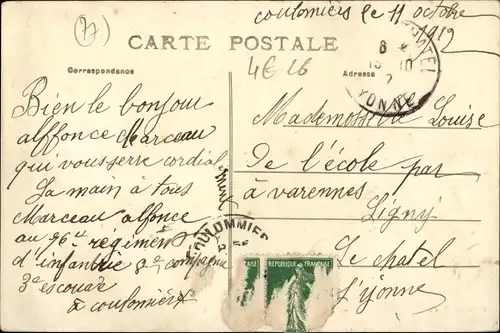 (77)
coulomiers le 11 octobre
1912
CARTE POSTALE
Correspondance
Adresse
4€ 26
8
10
YONNE
Bien le bonjour
alffonce Marceau
qui vous serre cordial
la main à tous
Marceau alfonce
au 96e régiment
d'infantrie 8e compagnie
3e escouar
à coulomiers
Mademoiselle Louise
De l'école par
à varennes
Ligny
Le chatel
L'yonne
COULOMMIERS
RÉPUBLIQUE FRANÇAISE